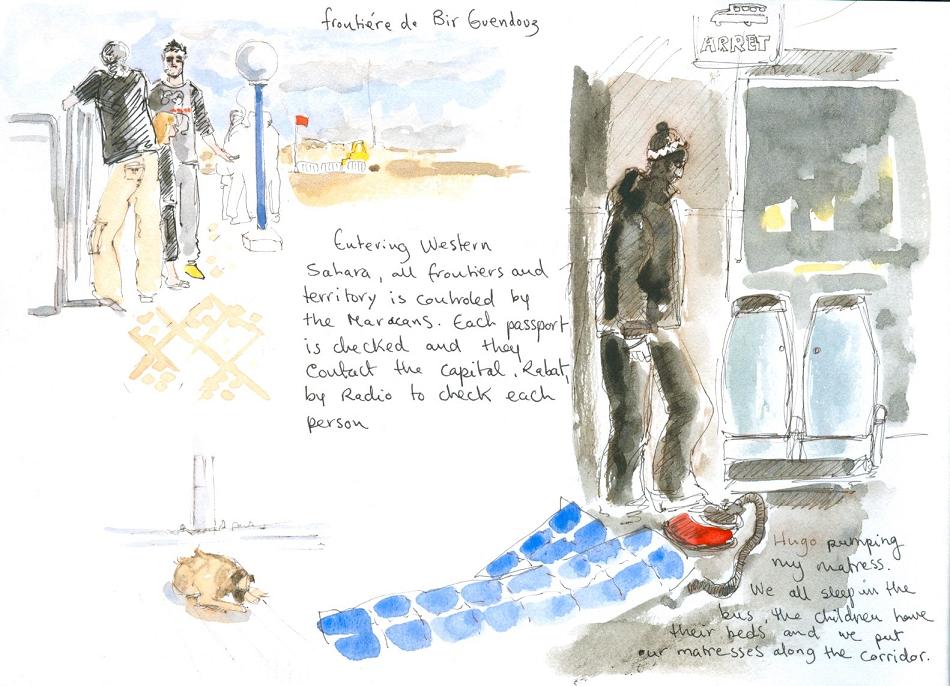 frontiére de Bir Guendouz
ARRET
Entering Western
Sahara, all frontiers and
territory is controled by
the Marocans. Each passport
is checked and they
contact the capital, Rabat,
by Radio to check each
person
Hugo pumping
my matress.
We all sleep in the
bus, the children have
their beds and we put
our matresses along the corridor.